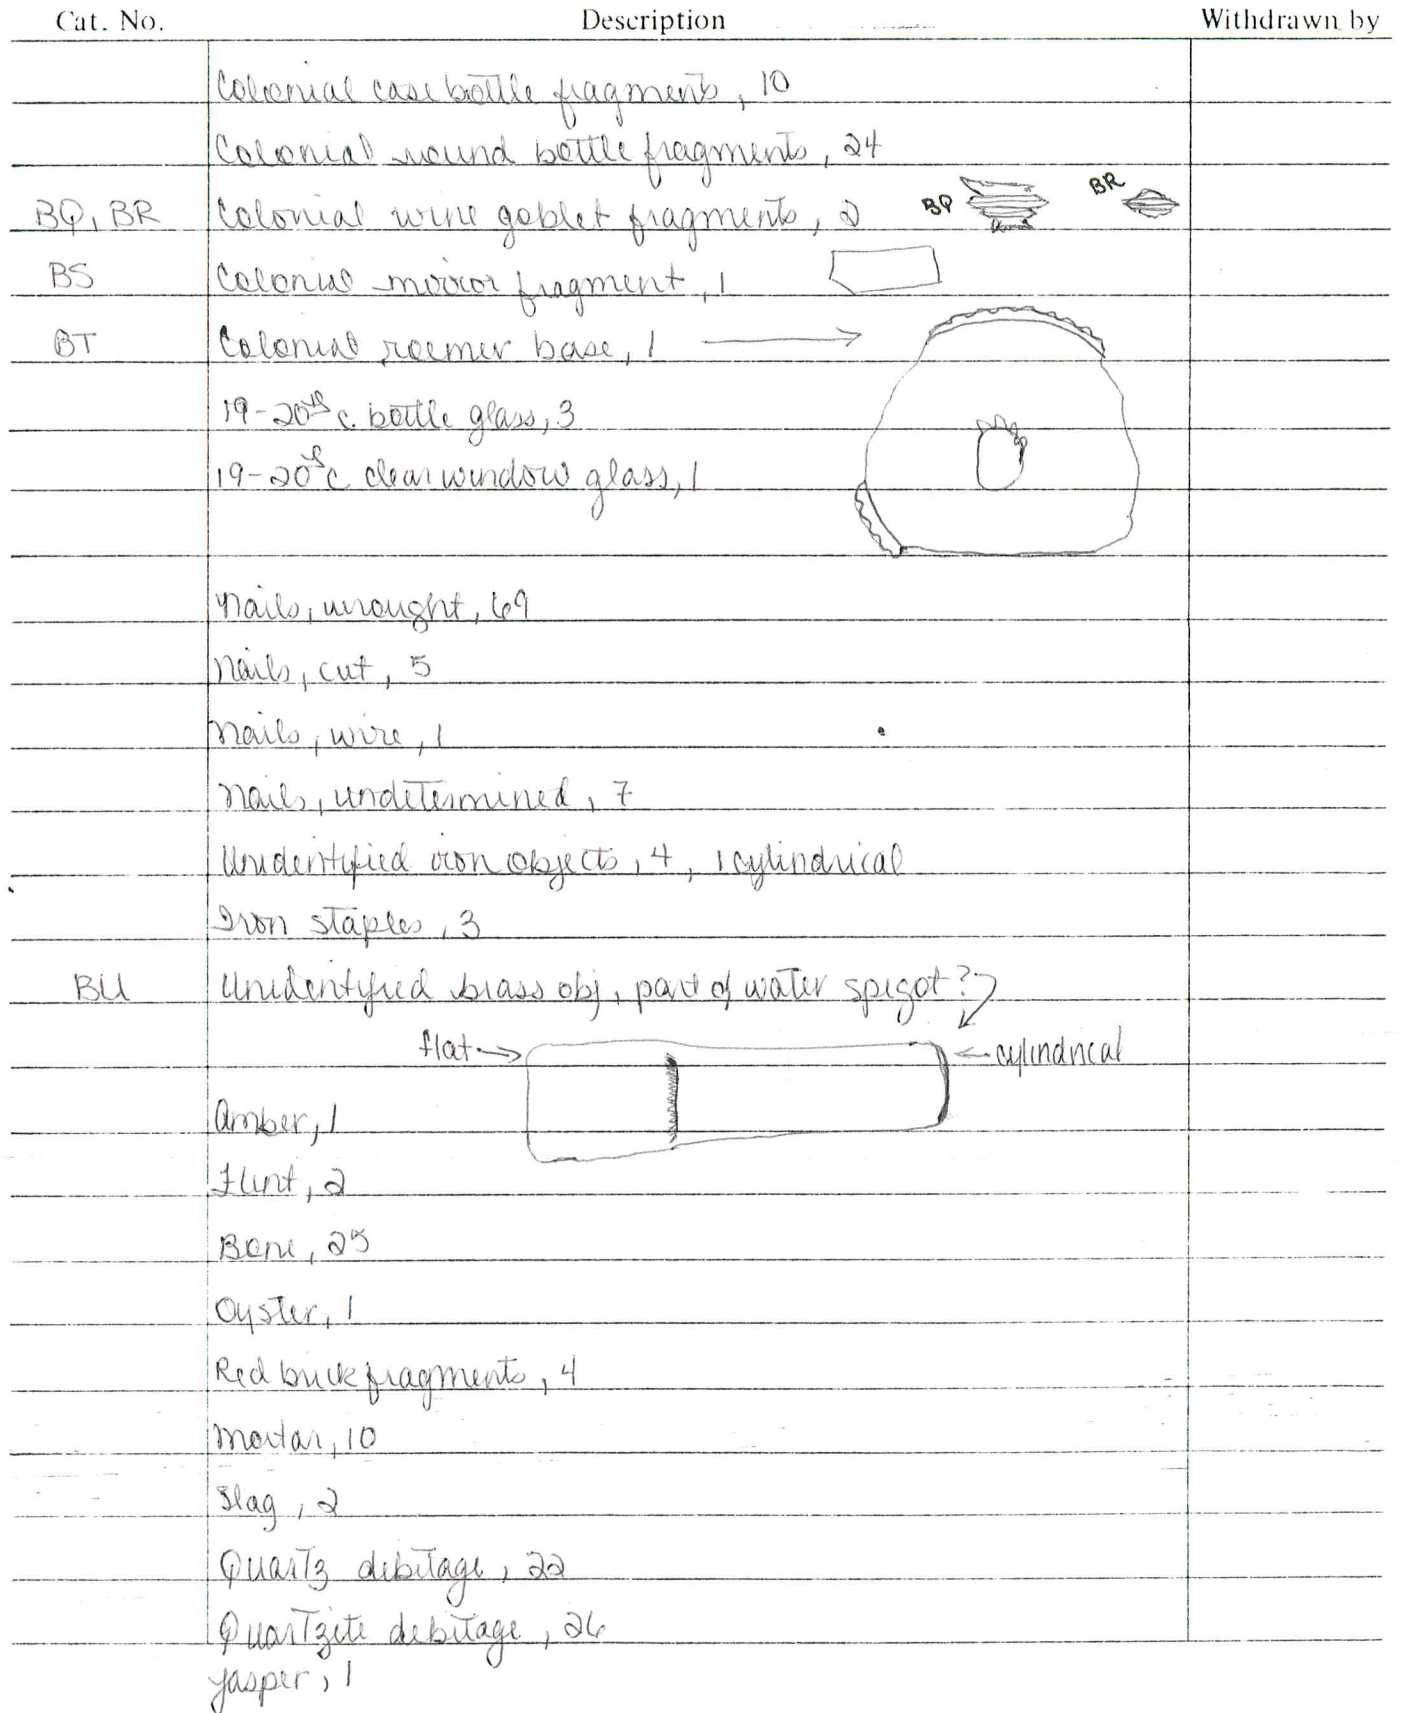 Cat. No. Description Withdrawn by
Colonial case bottle fragments, 10
Colonial round bottle fragments, 24
BQ, BR Colonial wine goblet fragments, 2 BQ BR
BS Colonial mirror fragment, 1
BT Colonial roemer base, 1
19-20th c. bottle glass, 3
19-20th c clear window glass, 1
Nails, wrought, 69
Nails, cut, 5
Nails, wire, 1
Nails, undetermined, 7
Unidentified iron objects, 4, 1 cylindrical
Iron staples, 3
BU Unidentified brass obj, part of water spigot?
flat → ← cylindrical
Amber, 1
Flint, 2
Bone, 25
Oyster, 1
Red brick fragments, 4
Mortar, 10
Slag, 2
Quartz debitage, 22
Quartzite debitage, 26
Jasper, 1